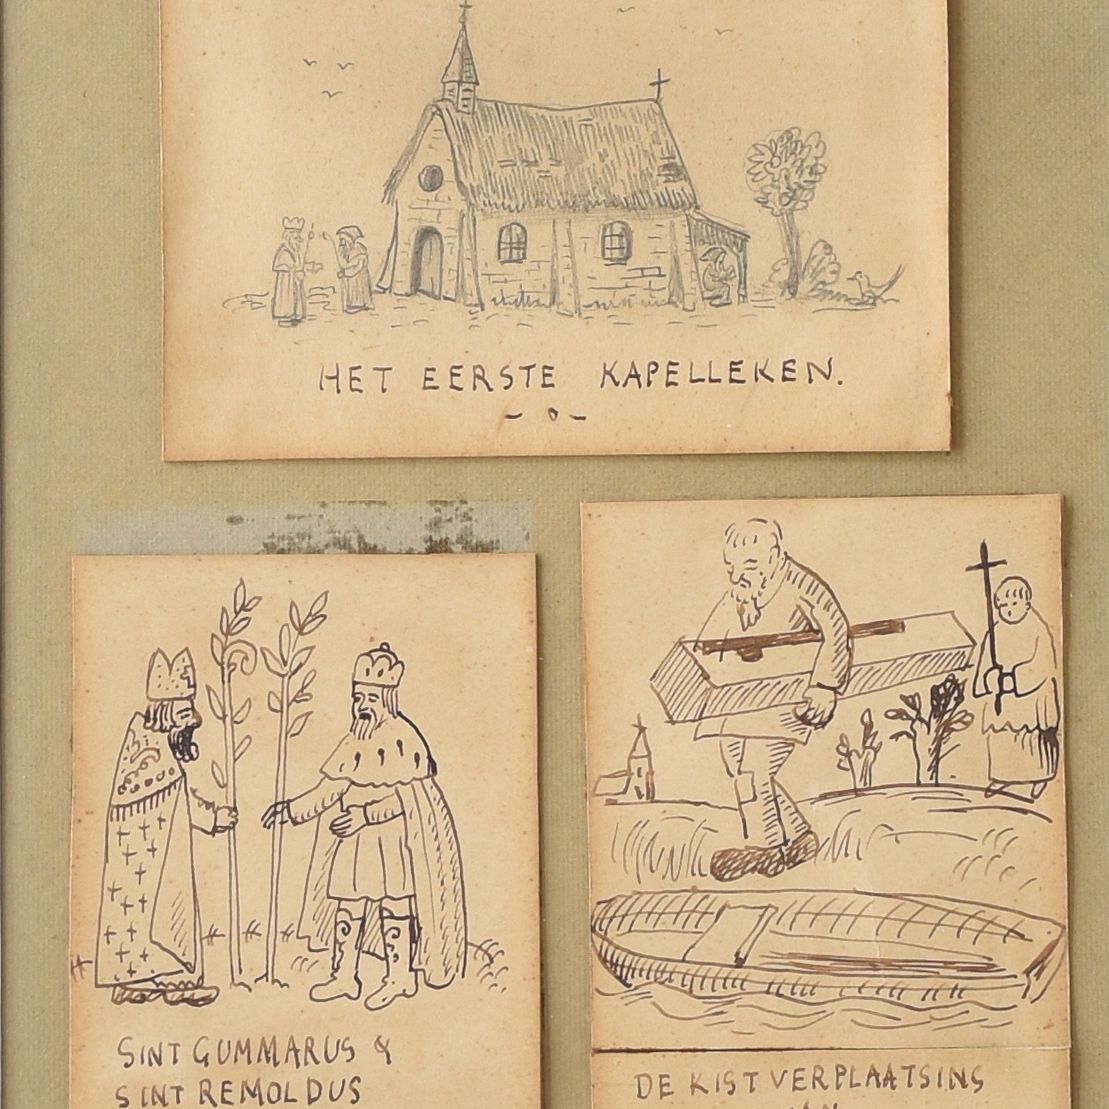 HET EERSTE KAPELLEKEN.
SINT GUMMARUS &
SINT REMOLDUS
DE KIST VERPLAATSING